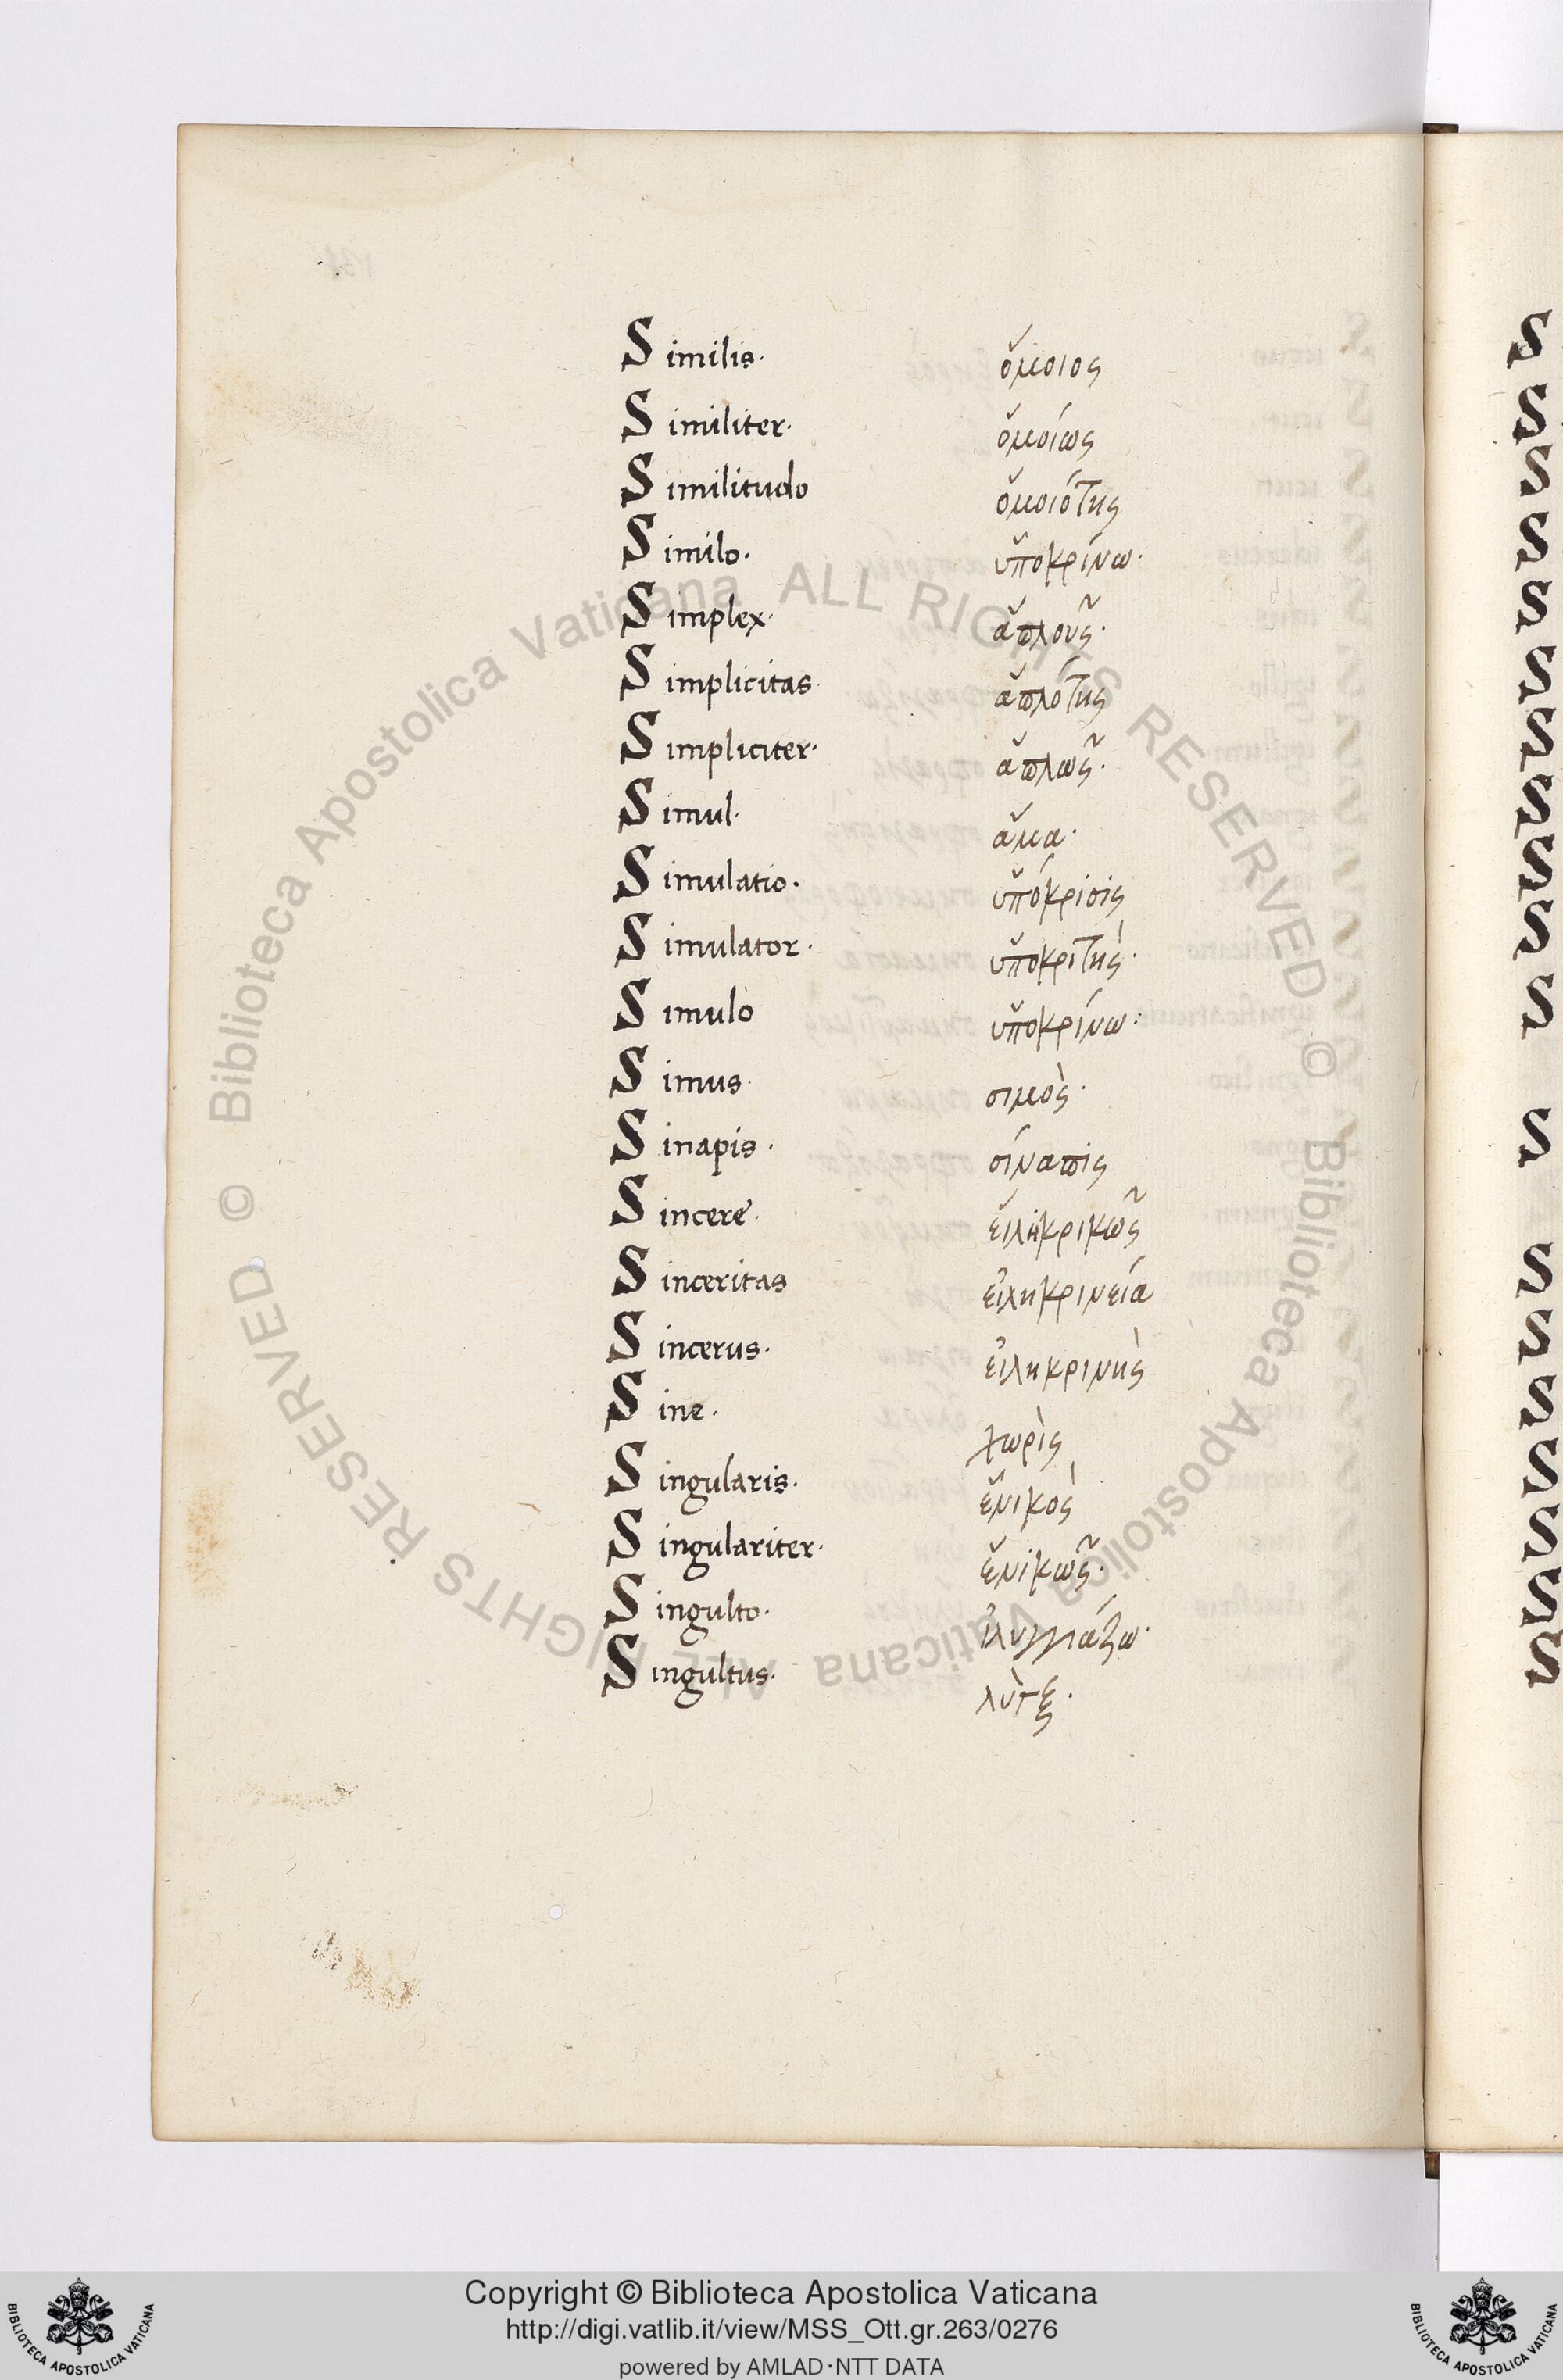 Similis· ὅμοιος
Similiter· ὁμοίως
Similitudo ὁμοιότης
Similo· ὑποκρίνω·
Simplex· ἁπλοῦς·
Simplicitas· ἁπλότης
Simpliciter· ἁπλῶς·
Simul· ἅμα·
Simulatio· ὑπόκρισις
Simulator· ὑποκριτὴς·
Simulo ὑποκρίνω·
Simus· σιμὸς·
Sinapis· σίναπις
Sincere· εἱλικρικῶς
Sinceritas εἰληκρινεία
Sincerus· εἰληκρινὴς
Sine· χωρὶς
Singularis· ἑνικὸς
Singulariter· ἑνικῶς·
Singulto· ἰλυγγιάζω·
Singultus· λὺγξ·
© Biblioteca Apostolica Vaticana ALL RIGHTS RESERVED © Biblioteca Apostolica Vaticana ALL RIGHTS RESERVED
Copyright © Biblioteca Apostolica Vaticana
http://digi.vatlib.it/view/MSS_Ott.gr.263/0276
powered by AMLAD·NTT DATA
BIBLIOTECA APOSTOLICA VATICANA
BIBLIOTECA APOSTOLICA VATICANA